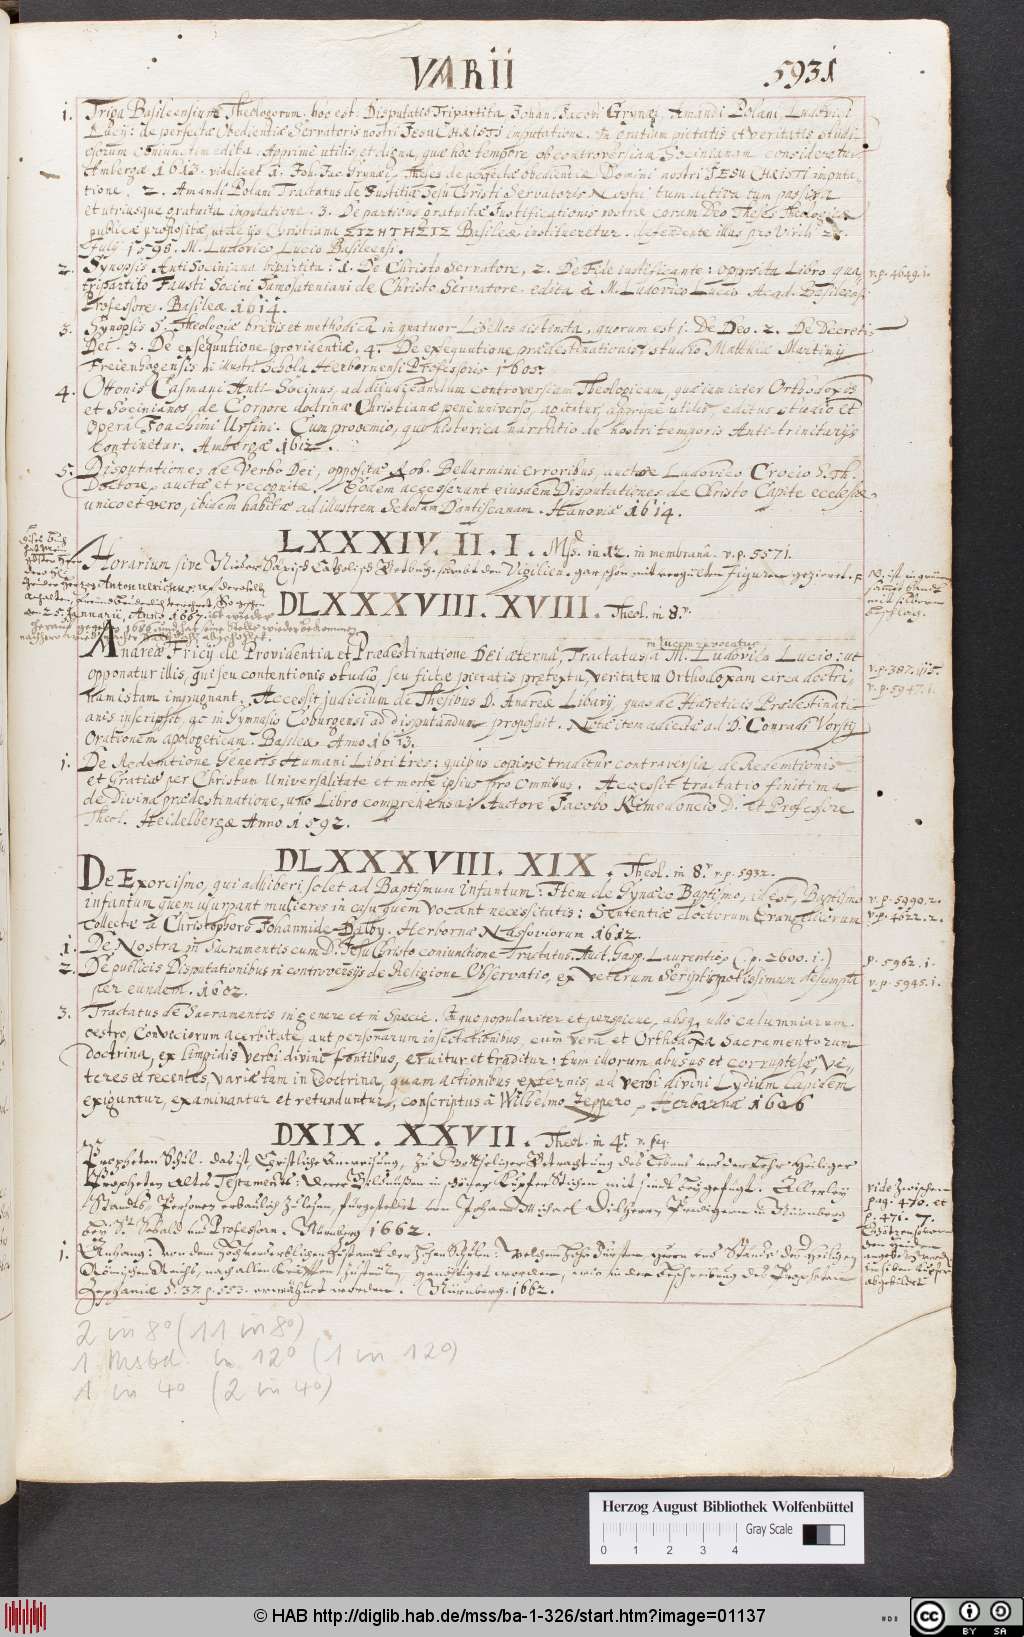 VARII
5931
1. Triga Basileensium Theologorum. hoc est. Disputatio Tripartita Johan. Jacobi Grynæi, Amandi Polani, Ludovici
Lucij: de perfecta Obedientiæ Servatoris nostri JESU CHRISTI imputatione. In gratiam pietatis et veritatis studi-
osorum conjunctim edita. Apprime utilis, et digna, quæ hoc tempore ob controversiam Socinianam consideretur
Ambergæ 1613. videlicet 1. Joh. Jac. Grynæi Theses de perfecta obedientia Domini nostri JESU CHRISTI imputa-
tione. 2. Amandi Polani Tractatus de Justitia Jesu Christi Servatoris Nostri tum activa tum passiva
et utriusque gratuita imputatione. 3. De partibus gratuitæ Justificationis nostræ coram Deo Theses Theologicæ
publicæ propositæ, ut de ijs Christiana ΣΥΖΗΤΗΣΙΣ Basileæ institueretur. defendente illas pro virili 28.
July 1598. M. Ludovico Lucio Basileensi.
2. Synopsis Anti Sociniana bipartita: 1. De Christo Servatore, 2. De Fide iustificante: opposita Libro qua-
v. p. 4649. 1.
tripartito Fausti Socini Samosateniani de Christo Servatore. edita à M. Ludovico Lucio Acad. Basileens.
Professore. Basileæ 1614.
3. Synopsis S. Theologiæ brevis et methodica in quatuor Libellos distincta, quorum est 1. De Deo. 2. De Decretis
Dei. 3. De exsequutione providentiæ, 4. De exequutione prædestinationis; studio Matthiæ Martinij
Freienhagensis in illustri Schola Herbornensi Professoris 1605.
4. Ottonis Casmani Anti-Socinus, ad dijudicandum controversiam Theologicam, quæ iam inter Orthodoxos
et Socinianos, de Corpore doctrinæ Christianæ pene universo, agitatur, apprime utilis, editus studio et
Opera Joachimi Ursini. Cum prooemio, quo historica narratio de nostri temporis Anti-trinitarijs
continetur. Ambergæ 1612.
5. Disputationes de Verbo Dei, oppositæ Rob. Bellarmini erroribus, auctore Ludovico Crocio S. Th.
Doctore, auctæ et recognitæ. Eidem accesserunt eiusdem Disputationes de Christo Capite ecclesiæ
unico et vero, ibidem habitæ ad illustrem Scholam Dantiscanam. Hanoviæ 1614.
LXXXIV. II. I. Mss. in 12. in membrana. v. p. 5571.
Horarium sive Nieder Catholisch Betbuch, sambt den Vigilien. gar schön mit verguldten Figuren gezieret.
Anton Ulrichen
Januarii, Anno 1667.
DLXXXVIII. XVIII. Theol. in 8.
in lucem revocatus
Andreæ Fricij de Providentia et Prædestinatione DEI æterna, Tractatus a M. Ludovico Lucio: ut
v. p. 387.
opponatur illis, qui seu contentionis studio, seu fictæ pietatis prætextu, veritatem Orthodoxam circa doctri-
v. p. 5947. 1.
nam istam impugnant. Accessit judicium de Thesibus D. Andreæ Libavij, quas de Hæreticis Prædestinati-
anis inscripsit, ac in Gymnasio Coburgensi ad disputandum proposuit. Notæ item adiectæ ad D. Conradi Vorstij
Orationem apologeticam. Basileæ Anno 1613.
1. De Redemtione Generis Humani Libri tres: quibus copiose traditur controversia de Redemtionis
et Gratiæ per Christum Universalitate et morte ipsius pro omnibus. Accessit tractatio finitima
de Divina prædestinatione, uno Libro comprehensa: Auctore Jacobo Kimedoncio D. et Professore
Theol. Heidelbergæ Anno 1592.
DLXXXVIII. XIX. Theol. in 8. v. p. 5932.
De Exorcismo, qui adhiberi solet ad Baptismum Infantum: Item de Gynæco Baptismo, id est, Baptismo
v. p. 5990. 2.
infantum quem usurpant mulieres in casu quem vocant necessitatis: Sententiæ doctorum Evangelicorum
v. p. 4622. 2.
collectæ à Christophoro Johannide Dalby. Herbornæ Nassoviorum 1612.
1. De Nostra in Sacramentis cum D. Jesu Christo coniunctione Tractatus. Aut. Gasp. Laurentio (: p. 2600. 1.)
p. 5962. 1.
2. De publicis Disputationibus in controversijs de Religione Observatio, ex veterum Scriptis potissimum desumpta
v. p. 5945. 1.
per eundem. 1602.
3. Tractatus de Sacramentis in genere et in specie. In quo populariter et perspicue, absq; ullo calumniarum
oestro, conviciorum acerbitate, aut personarum insectationibus, cum vera et Orthodoxa Sacramentorum
doctrina, ex limpidis verbi divini fontibus, eruitur et traditur: tum illorum abusus et corruptelæ, ve-
teres et recentes, variæ tam in doctrina, quam actionibus externis, ad verbi divini Lydium lapidem
exiguntur, examinantur et retunduntur, conscriptus à Wilhelmo Zeppero. Herbornæ 1606
DXIX. XXVII. Theol. in 4.
Propheten Schul. das ist, Christliche Anweisung, zu Gottseliger Betrachtung des Lebens und der Lehre Heiliger
Propheten Altes Testaments: deren Bildnussen in schönen Kupfer Stichen mit sind beygefügt. Allerley
vide zwischen
pag. 470. et
Stands-Personen erbaulich zu lesen, fürgestellet von Johann Michael Dilherrn Predigern in Nürnberg
p. 471.
bey S. Sebald und Professorn. Nürnberg 1662.
1. Anhang:
Römischen Reichs, nach allen
Zephaniæ 1662.
2 in 8° (11 in 8°)
1 Msbd. in 12° (1 in 12°)
1 in 4° (2 in 4°)
Herzog August Bibliothek Wolfenbüttel
Gray Scale
0 1 2 3 4
© HAB http://diglib.hab.de/mss/ba-1-326/start.htm?image=01137
cc BY SA